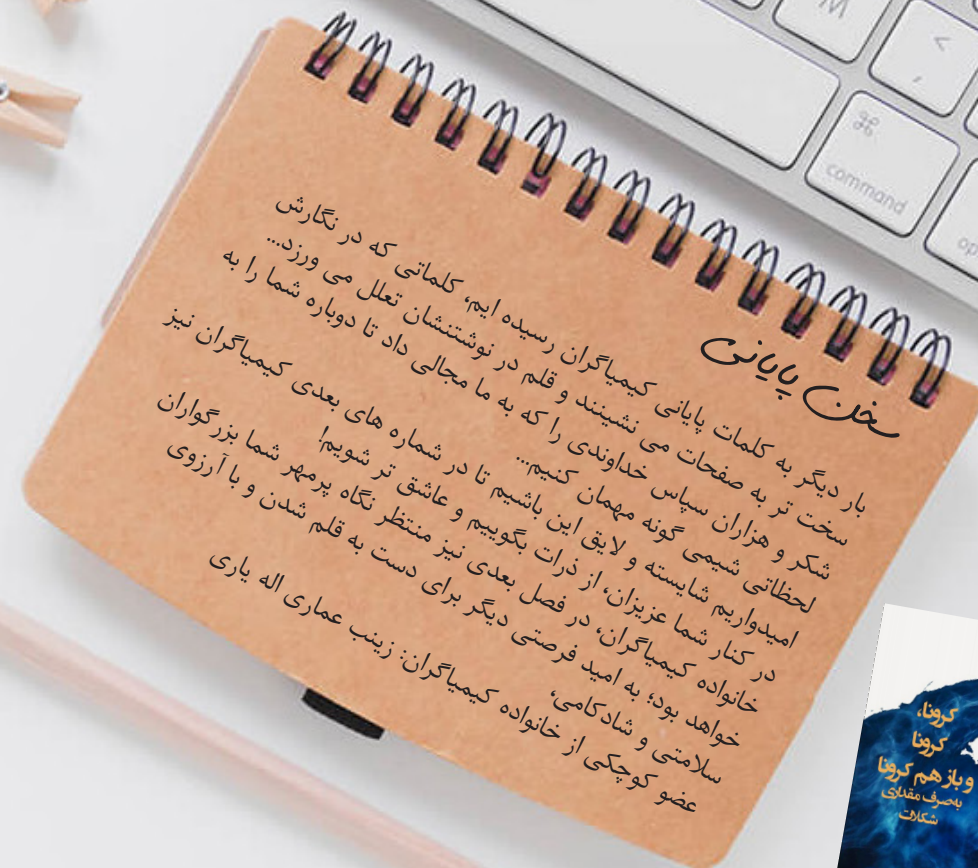 سخن پایانی
بار دیگر به کلمات پایانی کیمیاگران رسیده ایم، کلماتی که در نگارش
سخت تر به صفحات می نشینند و قلم در نوشتنشان تعلل می ورزد...
شکر و هزاران سپاس خداوندی را که به ما مجالی داد تا دوباره شما را به
لحظاتی شیمی گونه مهمان کنیم...
امیدواریم شایسته و لایق این باشیم تا در شماره های بعدی کیمیاگران نیز
در کنار شما عزیزان، از ذرات بگوییم و عاشق تر شویم!
خانواده کیمیاگران، در فصل بعدی نیز منتظر نگاه پرمهر شما بزرگواران
خواهد بود؛ به امید فرصتی دیگر برای دست به قلم شدن و با آرزوی
سلامتی و شادکامی،
عضو کوچکی از خانواده کیمیاگران: زینب عماری اله یاری
M
<
,
⌘
command
op
کرونا،
کرونا
و باز هم کرونا
به‌صرف مقداری
شکلات